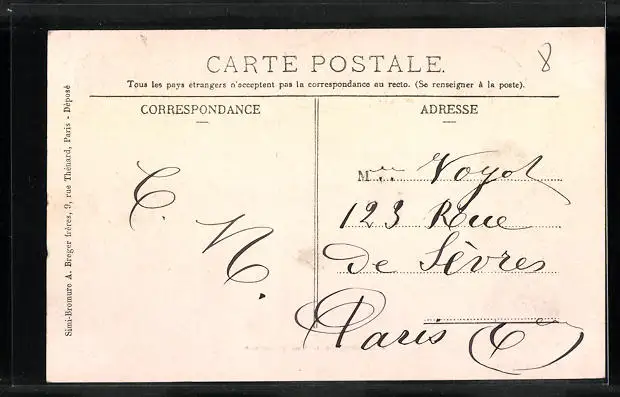 8
CARTE POSTALE.
Tous les pays étrangers n'acceptent pas la correspondance au recto. (Se renseigner à la poste).
CORRESPONDANCE
ADRESSE
Simi-Bromure A. Breger frères, 9, rue Thénard, Paris - Déposé
C. N.
Mlle Voyot
123 Rue
de Sèvres
Paris